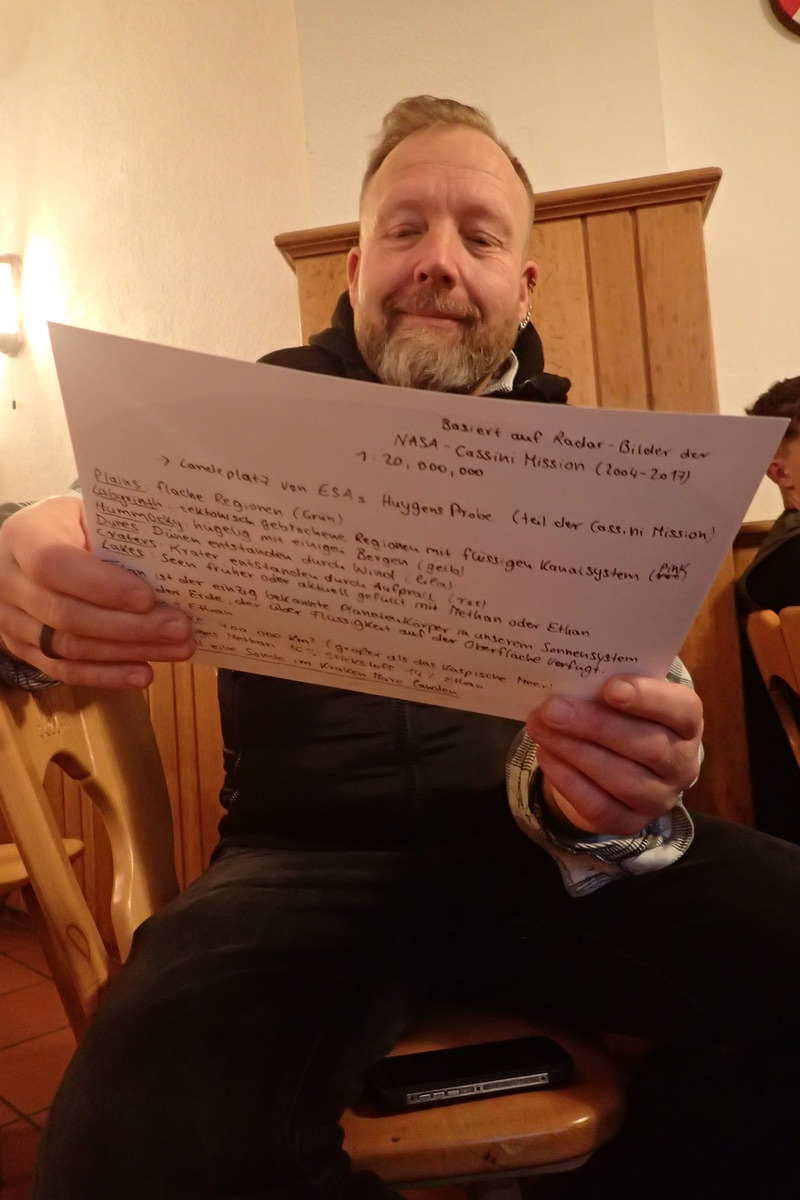 Basiert auf Radar-Bilder der
NASA-Cassini Mission (2004-2017)
1:20,000,000
→ Landeplatz von ESAs Huygens Probe (Teil der Cassini Mission)
Plains: flache Regionen (Grün)
Labyrinth: tektonisch gebrochene Regionen mit flüssigen Kanalsystem (pink)
Hummocky: hügelig mit einigen Bergen (gelb)
Dunes: Dünen entstanden durch Wind (lila)
Craters: Krater entstanden durch Aufprall (rot)
Lakes: Seen früher oder aktuell gefüllt mit Methan oder Ethan
ist der einzig bekannte Planetenkörper in unserem Sonnensystem
der Erde, der über Flüssigkeit auf der Oberfläche verfügt.
Ethan
400 000 km² (größer als das Kaspische Meer)
Methan 16% Stickstoff 14% Ethan
eine Sonde im Kraken Mare landen